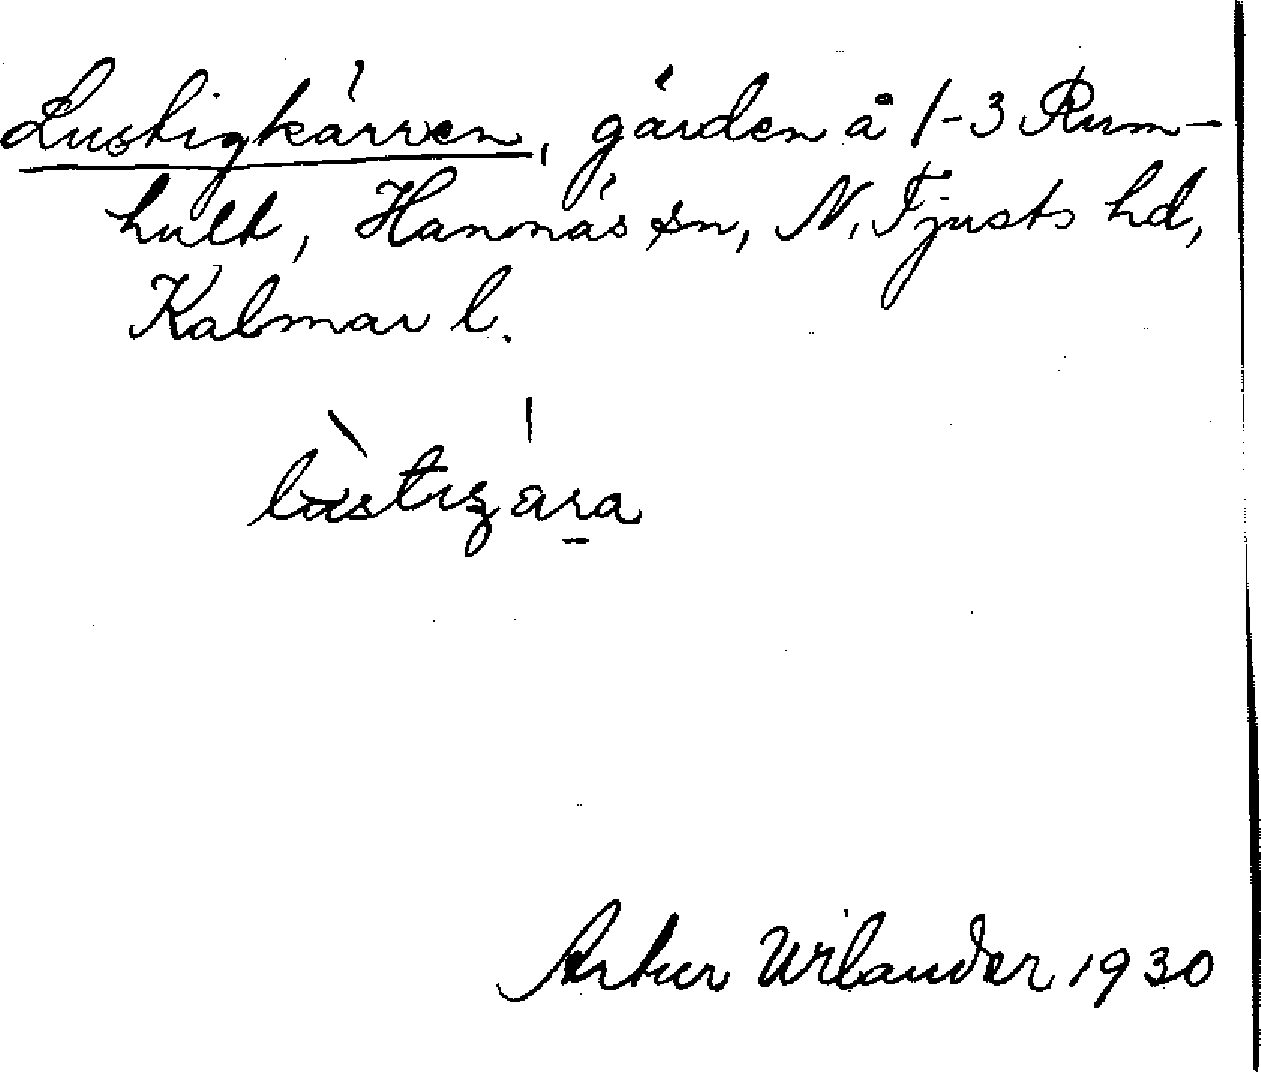 Lustigkärren, gärden å 1-3 Rum-
hult, Hannäs sn, N. Tjusts hd,
Kalmar l.
Artur Wilander 1930